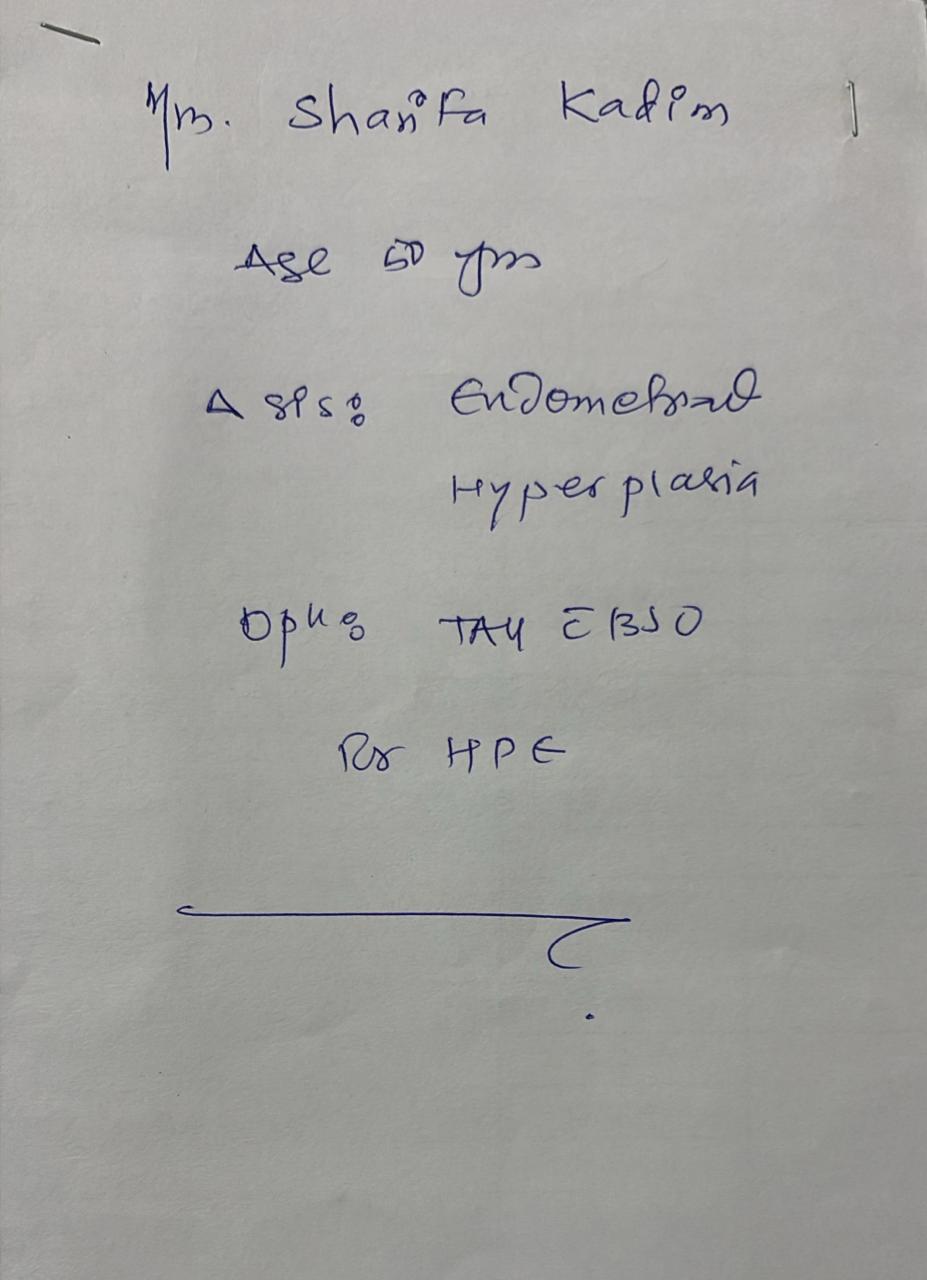 Mrs. Sharifa Kadim
Age 50 yrs
Δ sis: Endometrial
Hyperplasia
Opn: TAH c̄ BSO
For HPE